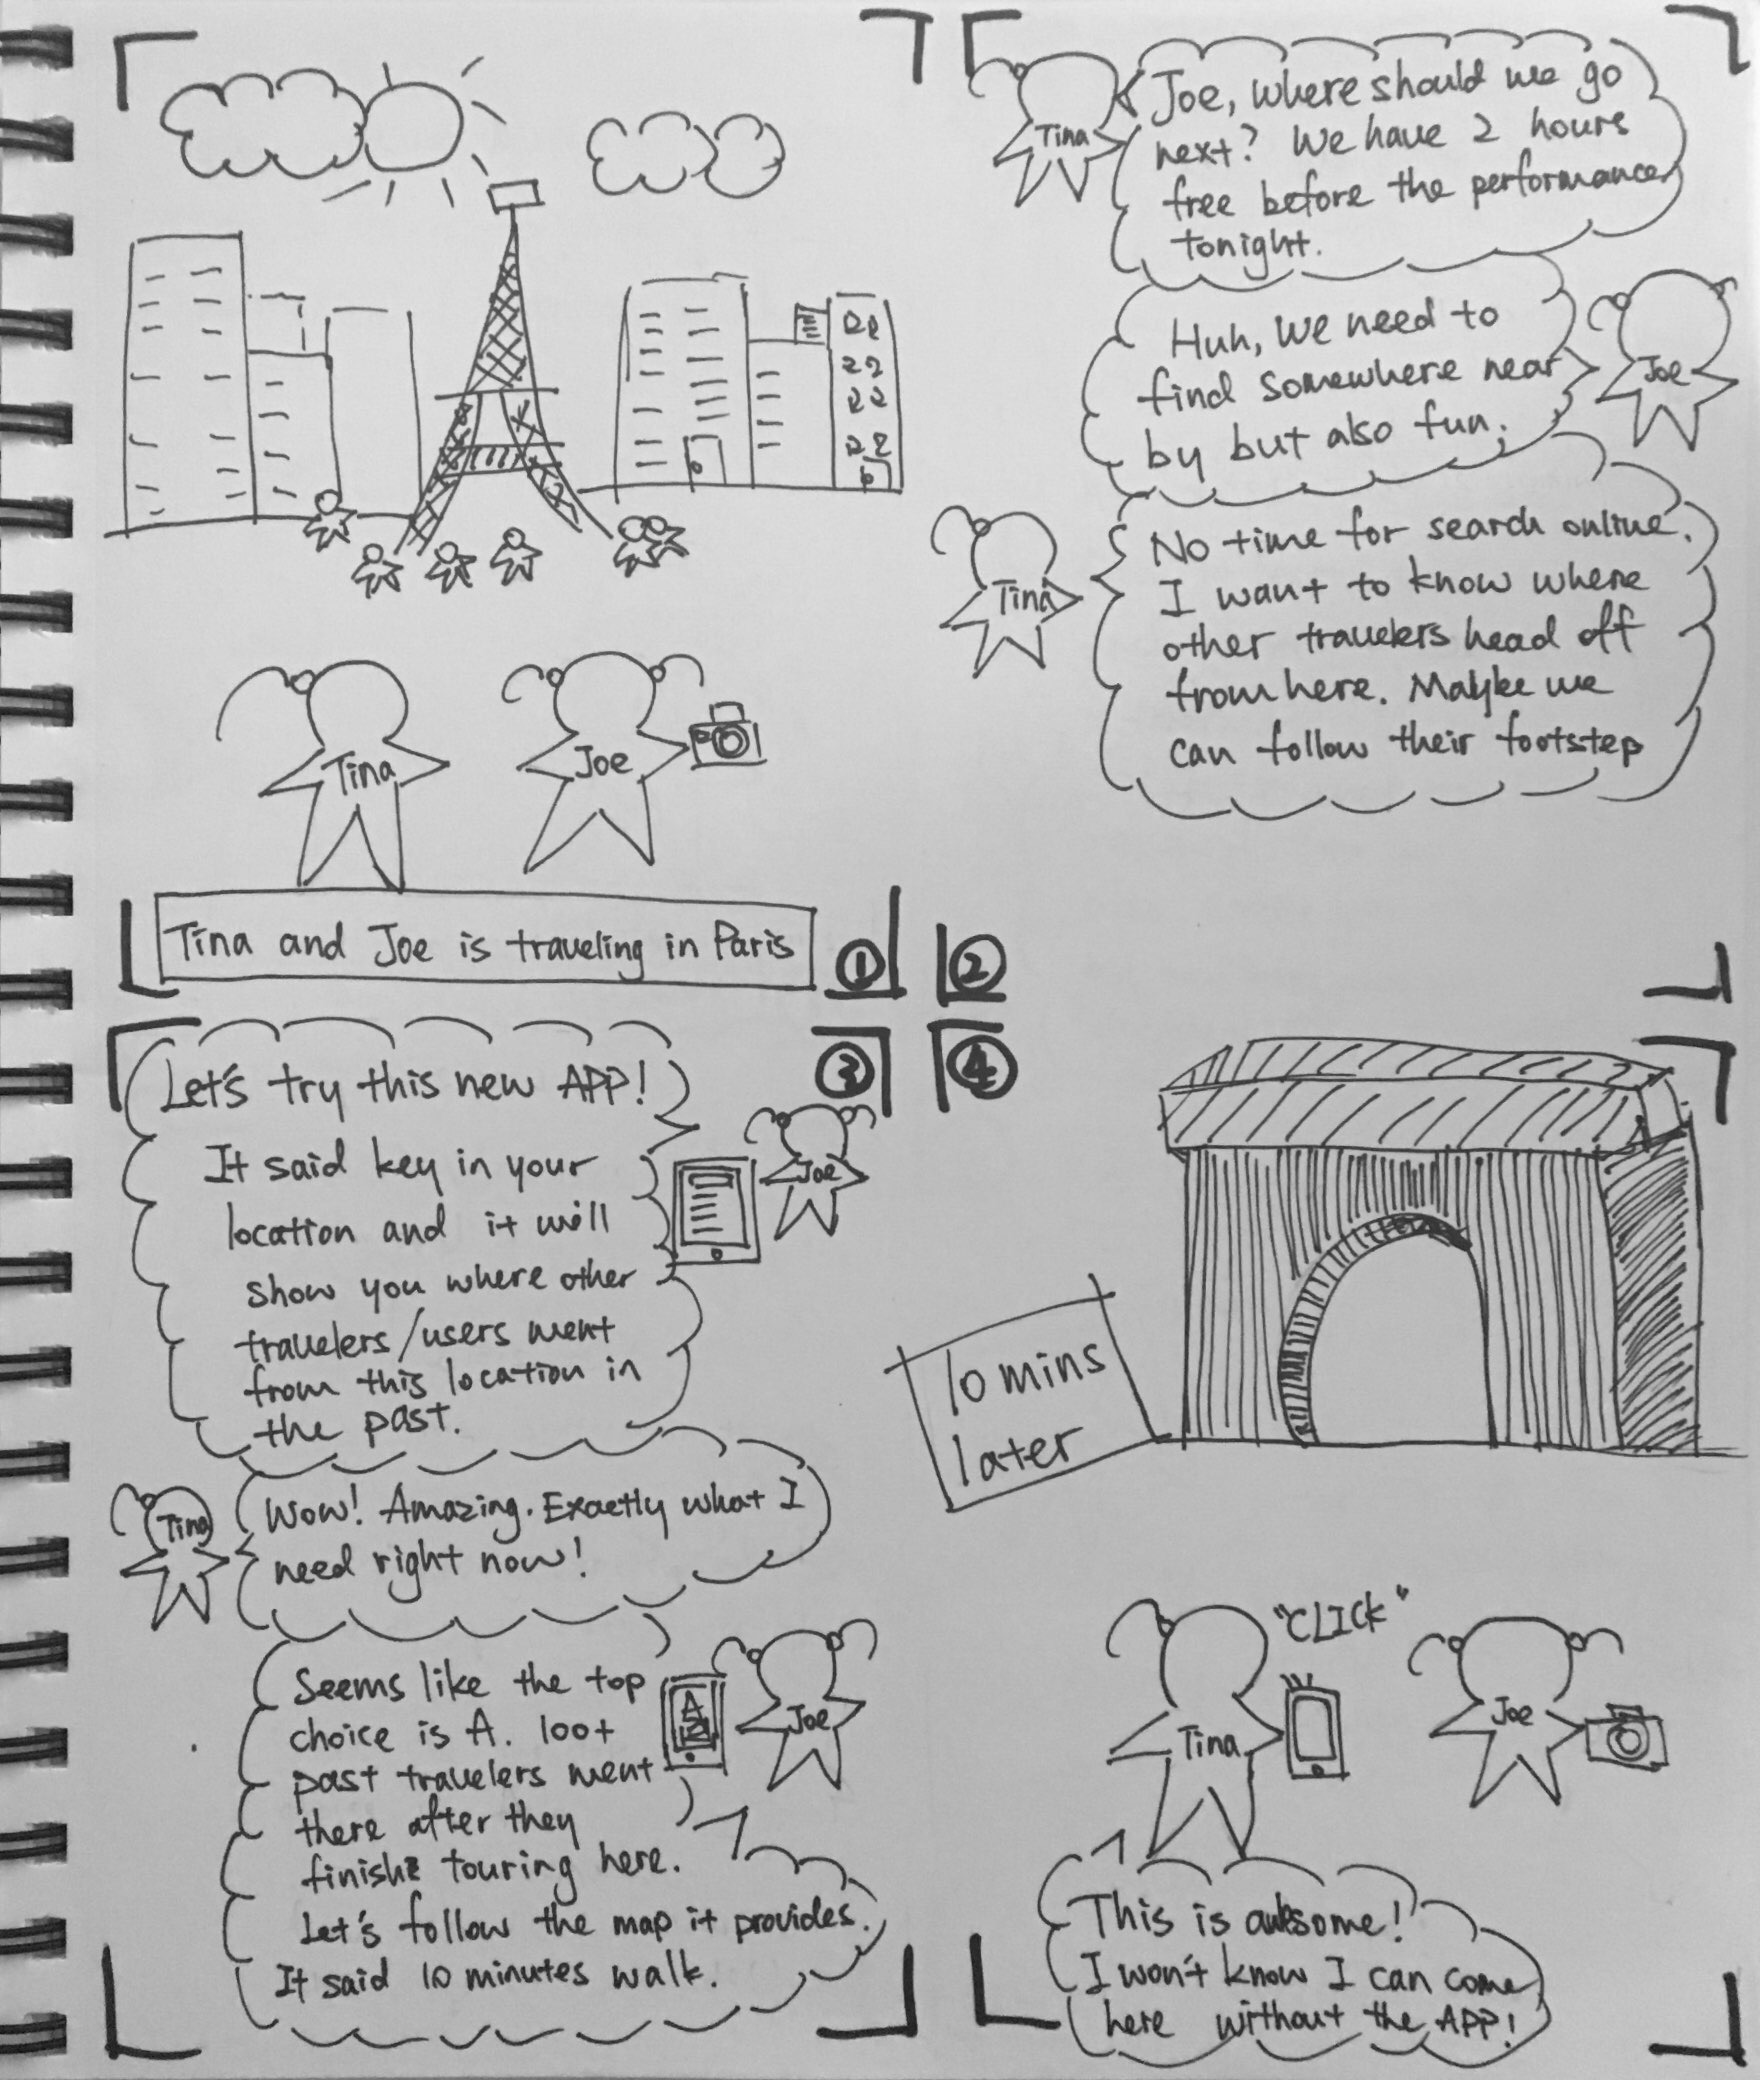 Tina
Joe
Tina and Joe is traveling in Paris
①
Tina
Joe, where should we go
next? We have 2 hours
free before the performance
tonight.
Joe
Huh, We need to
find somewhere near
by but also fun.
Tina
No time for search online.
I want to know where
other travelers head off
from here. Maybe we
can follow their footstep
②
③
Joe
Let's try this new APP!
It said key in your
location and it will
show you where other
travelers/users went
from this location in
the past.
Tina
Wow! Amazing. Exactly what I
need right now!
Joe
A
Seems like the top
choice is A. 100+
past travelers went
there after they
finish touring here.
Let's follow the map it provides.
It said 10 minutes walk.
④
10 mins
later
"CLICK"
Tina
Joe
This is awesome!
I won't know I can come
here without the APP!